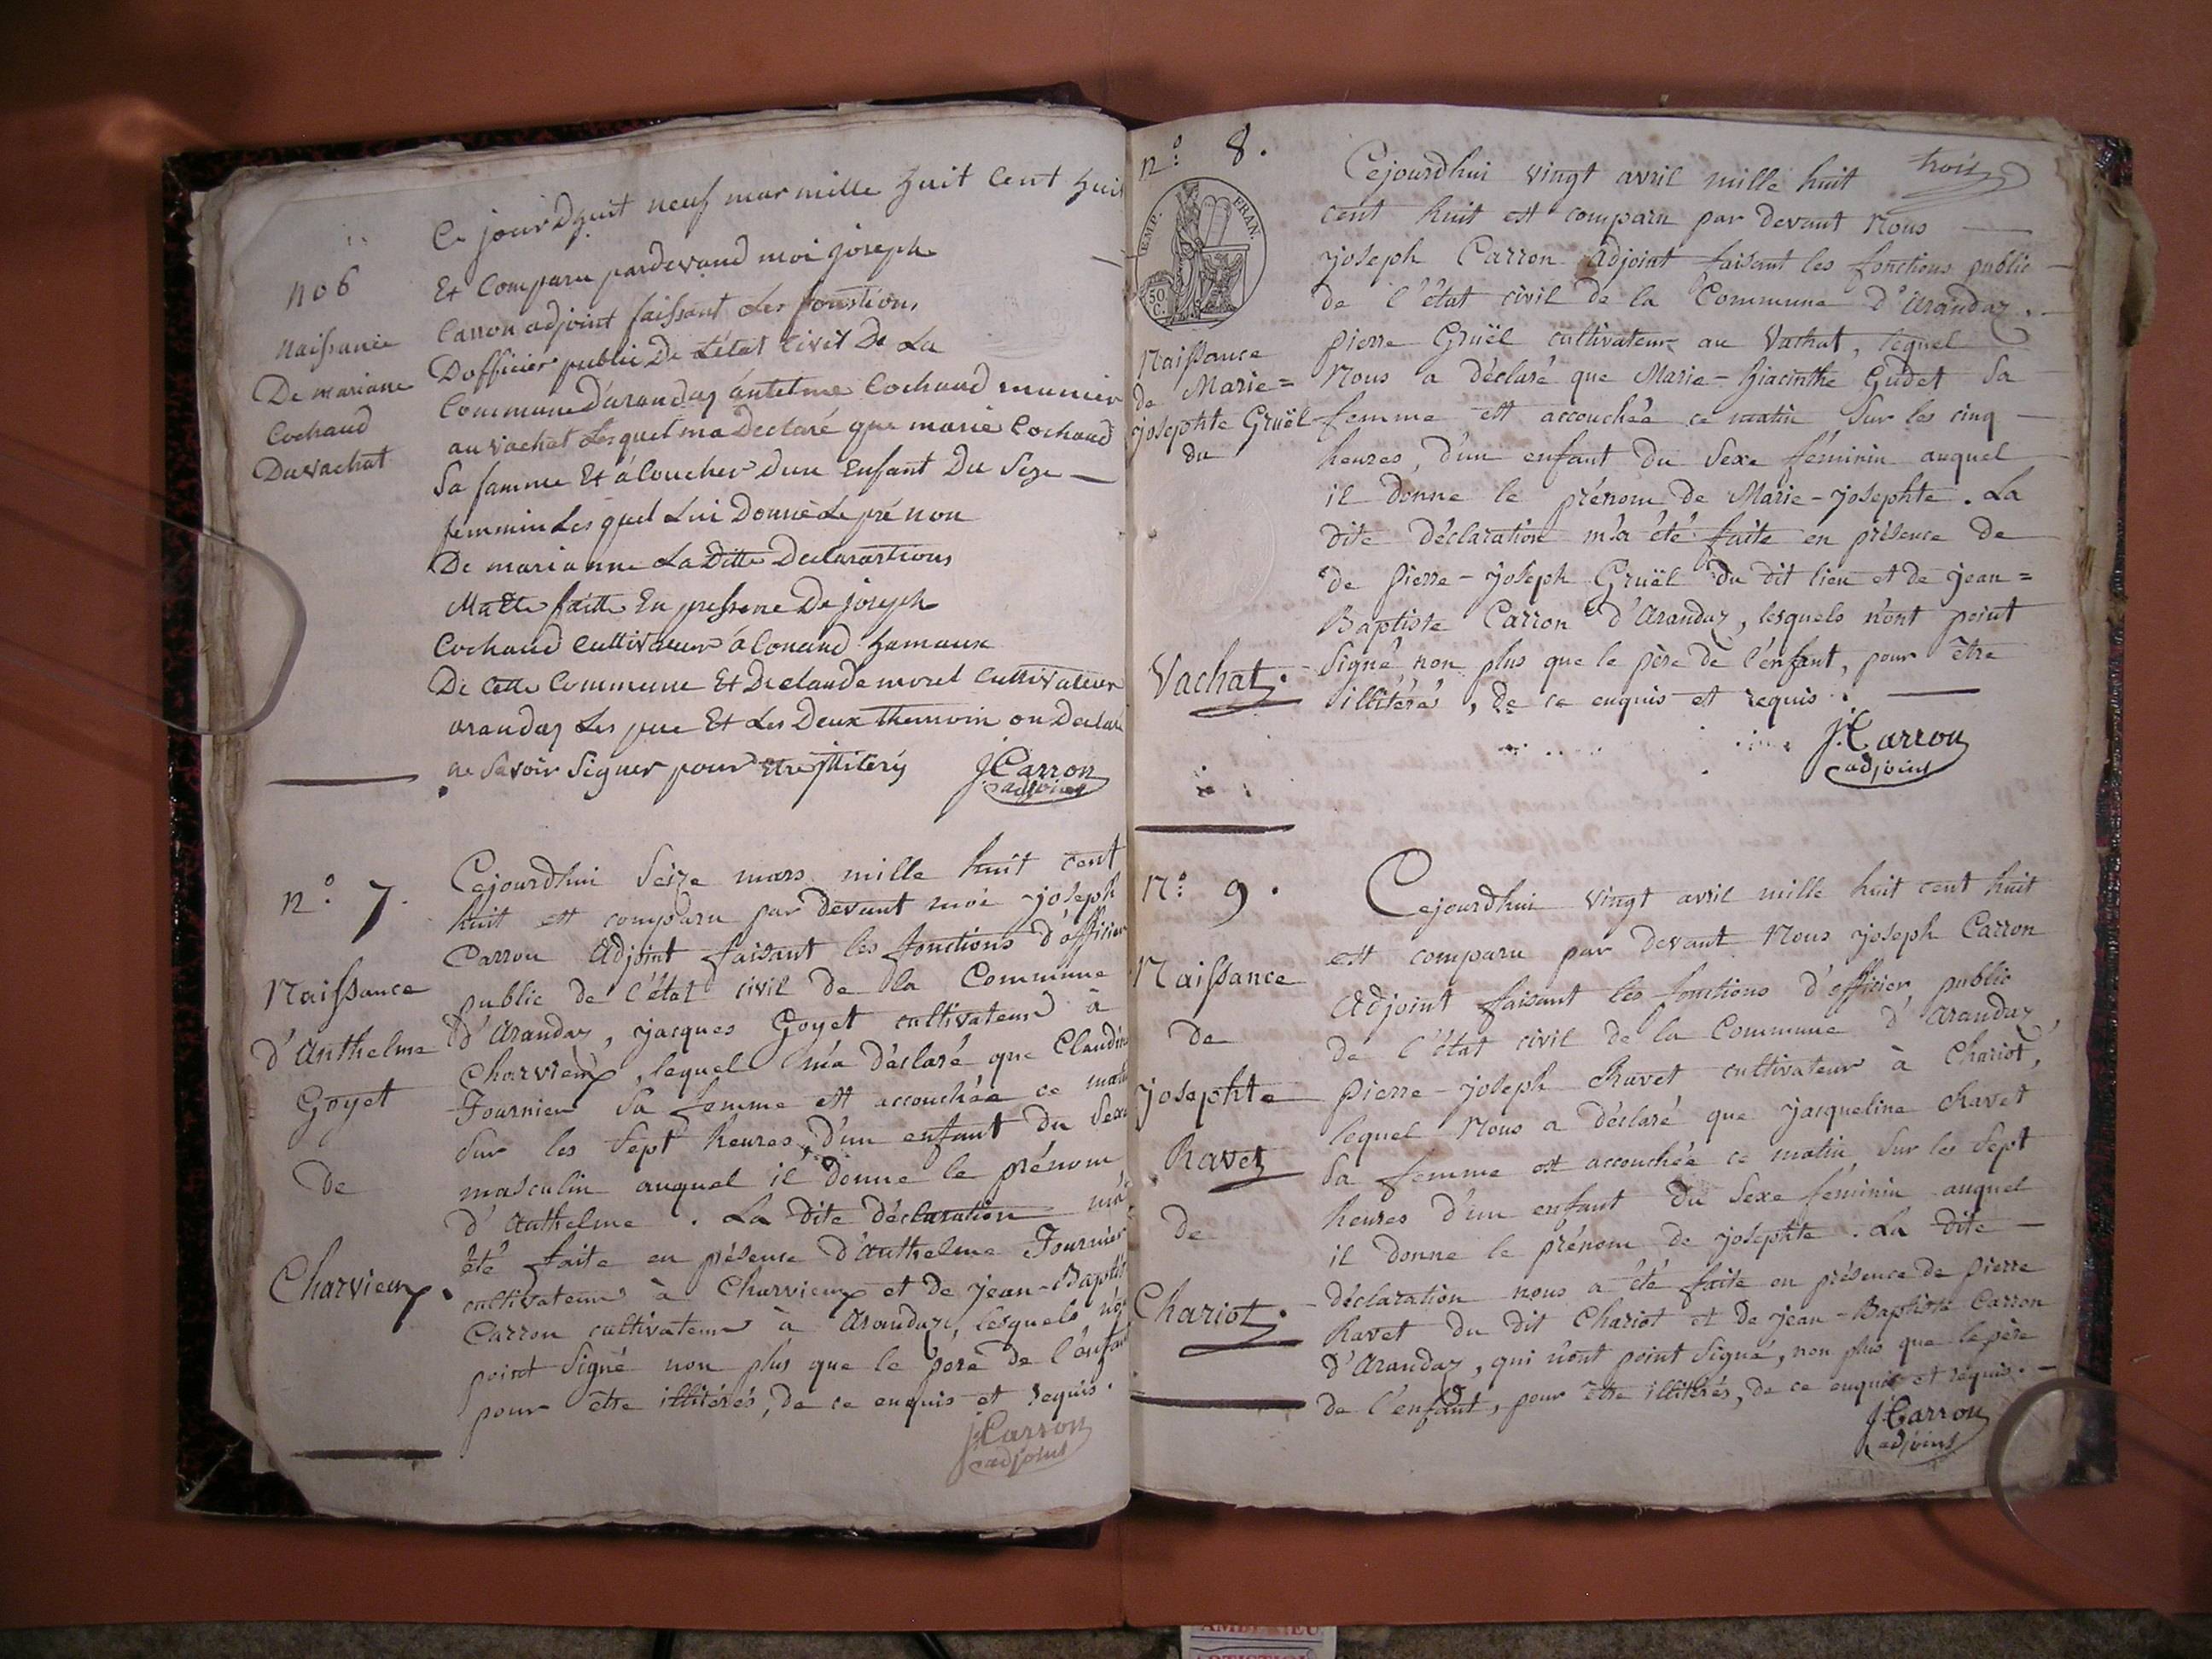 no 6
naissance
De mariane
Cochaud
Du vachat
Ce jourdhuit neuf mar mille huit Cent huit
Et Comparu pardevand moi joseph
Carron adjoint faissant Les fonstions
Dofficier public De L'état Civil De La
Commune D'arandas antelme Cochaud munier
au vachat Lesquel ma Declaré que marie Cochaud
Sa famme Et à Coucher dun Enfant Du Sexe
femmin Lesquel Lui Donne Le pré non
De marianne La Ditte Declarastions
Ma Ete faitte En pressene De joseph
Cochaud Cultivateur à Conand hamaux
De Cette Commune Et De claude morel Cultivateur
arandas Les pere Et Les Deux themoin on Declaré
ne Savoir Signer pour Etre illiterés
J. Carron
adjoint
n.o 7.
Naissance
d'Anthelme
Goyet
de
Charvieux.
Cejourdhui Seize mars mille huit cent
huit est comparu par devant moi joseph
Carron Adjoint faisant les fonctions d'officier
public de l'état civil de la Commune
d'Arandas, jacques Goyet cultivateur à
Charvieux, lequel m'a déclaré que Claudine
Fournier Sa femme est accouchée ce matin
Sur les Sept heures, d'un enfant du Sexe
masculin auquel il donne le prénom
d'Anthelme. La dite déclaration m'a
été faite en présense d'Anthelme Fournier
cultivateur à Charvieux et de jean-Baptiste
Carron cultivateur à Arandas, lesquels n'ont
point Signé non plus que le pere de l'enfant
pour être illitérés, de ce enquis et requis.
J. Carron
adjoint
n.o 8.
trois
EMP. FRAN.
50
C.
Naissance
de Marie=
josephte Gruël
du
Vachat.
Cejourdhui vingt avril mille huit
cent huit est comparu par devant Nous
joseph Carron Adjoint faisant les fonctions public
de l'état civil de la Commune d'Arandas.
pierre Gruël cultivateur au Vachat, lequel
Nous a déclaré que Marie-Hiacinthe Gudet Sa
femme est accouchée ce matin Sur les cinq
heures, d'un enfant du Sexe féminin auquel
il donne le prénom de Marie-josephte. La
dite déclaration m'a été faite en présence de
de pierre-joseph Gruël du dit lieu et de jean=
Baptiste Carron d'Arandas, lesquels n'ont point
Signé non plus que le père de l'enfant, pour être
illitéré, de ce enquis et requis.
J. Carron
adjoint
N.o 9.
Naissance
de
josephte
Ravet
de
Chariot.
Cejourdhui vingt avril mille huit cent huit
est comparu par devant Nous joseph Carron
Adjoint faisant les fonctions d'officier public
de l'état civil de la Commune d'Arandas,
pierre-joseph Ravet cultivateur à Chariot,
lequel Nous a déclaré que jacqueline Ravet
Sa femme est accouchée ce matin Sur les Sept
heures d'un enfant du Sexe féminin auquel
il donne le prénom de josephte. La dite
déclaration nous a été faite en présence de pierre
Ravet du dit Chariot et de jean-Baptiste Carron
d'Arandas, qui n'ont point Signé, non plus que le père
de l'enfant, pour être illitérés, de ce enquis et requis.
J. Carron
adjoint